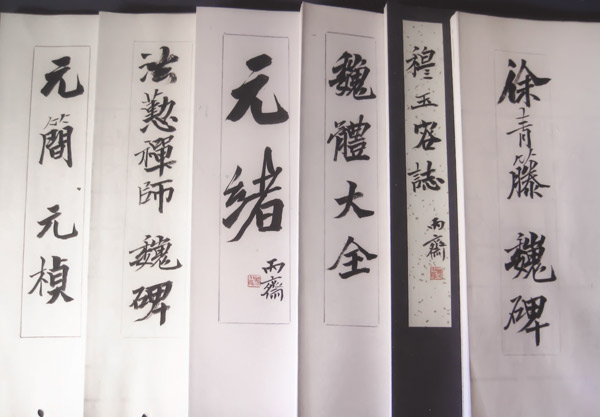 元簡 元楨
法懃禪師 魏碑
元緒
雨齋
魏體大全
穆玉容誌
雨齋
徐青籐 魏碑